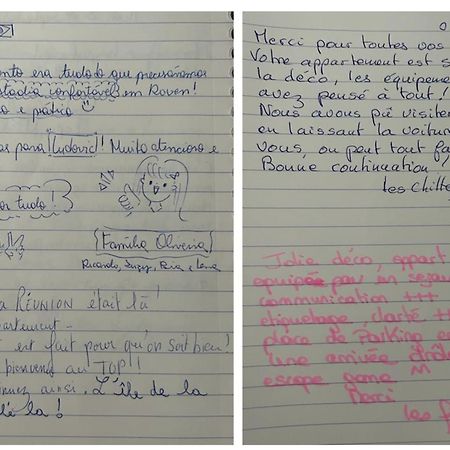 ento era tudo do que precisávamos
estadia confortável em Rouen!
o e prático
as para Ludovic! Muito atencioso e
or tudo!
Família Oliveira
Ricardo, e
a RÉUNION était là!
partement -
est fait pour qu'on soit bien!
bienvenu au TOP!!
nuez ainsi. L'île de la
là!
Merci pour toutes vos
Votre appartement est s
la déco, les équipeme
avez pensé à tout!
Nous avons pu visiter
en laissant la voitur
vous, on peut tout fa
Bonne continuation!
les Chilt
Jolie déco, appart
équipée pour un séjour
communication +++
étiquetage clarté ++
place de Parking e
une arrivée
escape game
Merci
les f